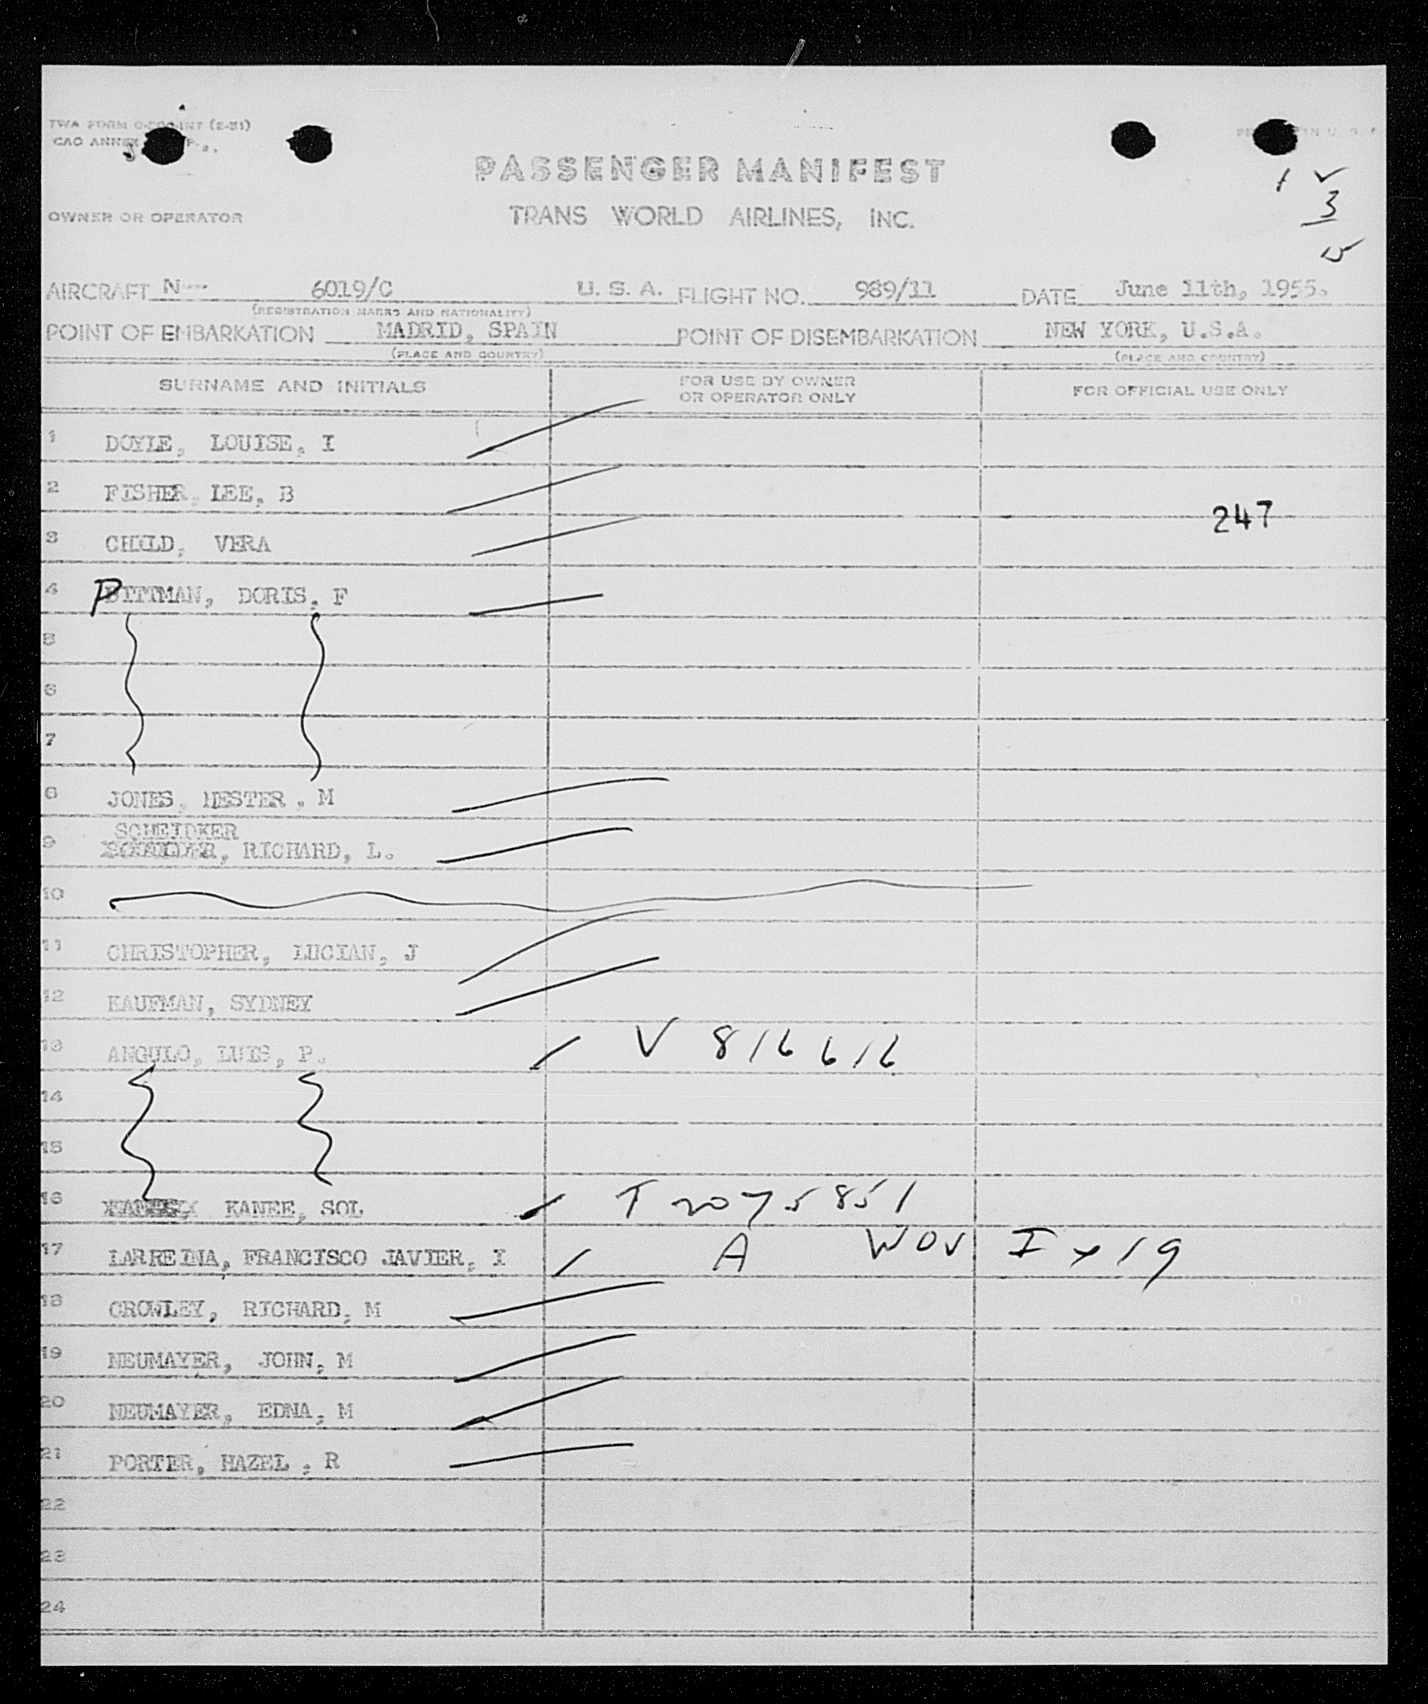 TWA FORM
CAO ANNEX
PASSENGER MANIFEST
OWNER OR OPERATOR
TRANS WORLD AIRLINES, INC.
3
15
AIRCRAFT N--- 6019/C U. S. A. FLIGHT NO. 989/11 DATE June 11th, 1955.
(REGISTRATION MARKS AND NATIONALITY)
POINT OF EMBARKATION MADRID, SPAIN POINT OF DISEMBARKATION NEW YORK, U.S.A.
(PLACE AND COUNTRY) (PLACE AND COUNTRY)
SURNAME AND INITIALS FOR USE BY OWNER OR OPERATOR ONLY FOR OFFICIAL USE ONLY
1 DOYLE, LOUISE, I
2 FISHER, LEE, B
247
3 CHILD, VERA
4 PITTMAN, DORIS, F
5
6
7
8 JONES, HESTER, M
SCHEIDKER
9 RICHARD, L.
10
11 CHRISTOPHER, LUCIAN, J
12 KAUFMAN, SYDNEY
13 ANGULO, LUIS, P. V 816616
14
15
16 KANEE, SOL T 2075851
17 LARREINA, FRANCISCO JAVIER, I A
18 CROWLEY, RICHARD, M
19 NEUMAYER, JOHN, M
20 NEUMAYER, EDNA, M
21 PORTER, HAZEL, R
22
23
24